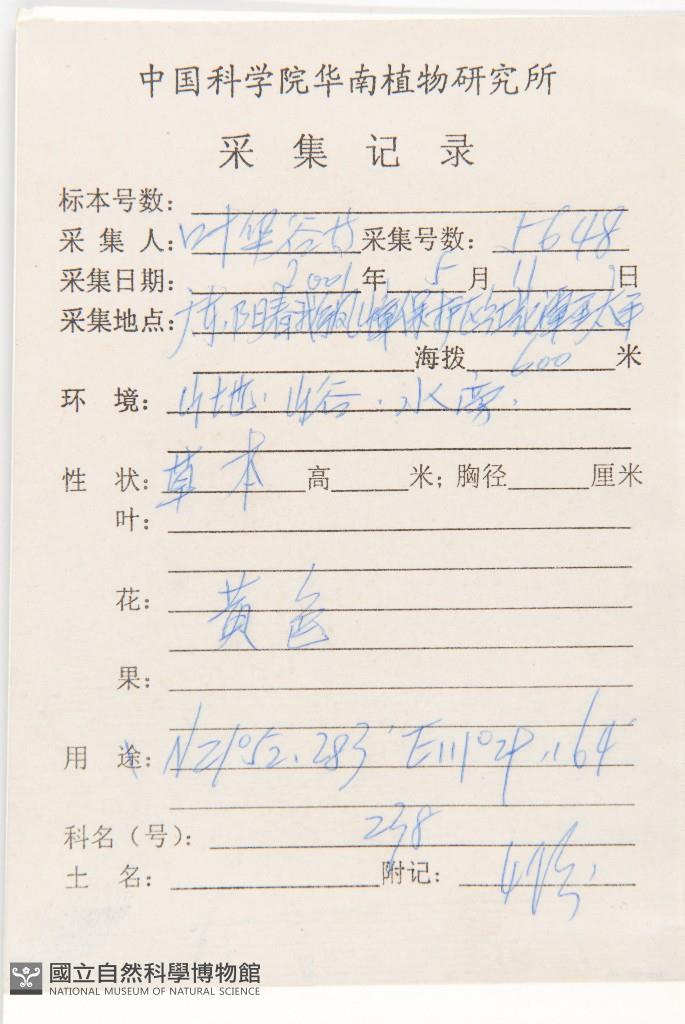 中国科学院华南植物研究所
采集记录
标本号数：
采集人：叶华谷 采集号数：5648
采集日期：2001年5月11日
采集地点：广东.阳春 保护区
海拨600米
环境：山地.山谷.水旁.
性状：草本 高 米；胸径 厘米
叶：
花：黄色
果：
用途：N21°52.283' E111°
科名（号）：238
土名： 附记：4份.
國立自然科學博物館
NATIONAL MUSEUM OF NATURAL SCIENCE